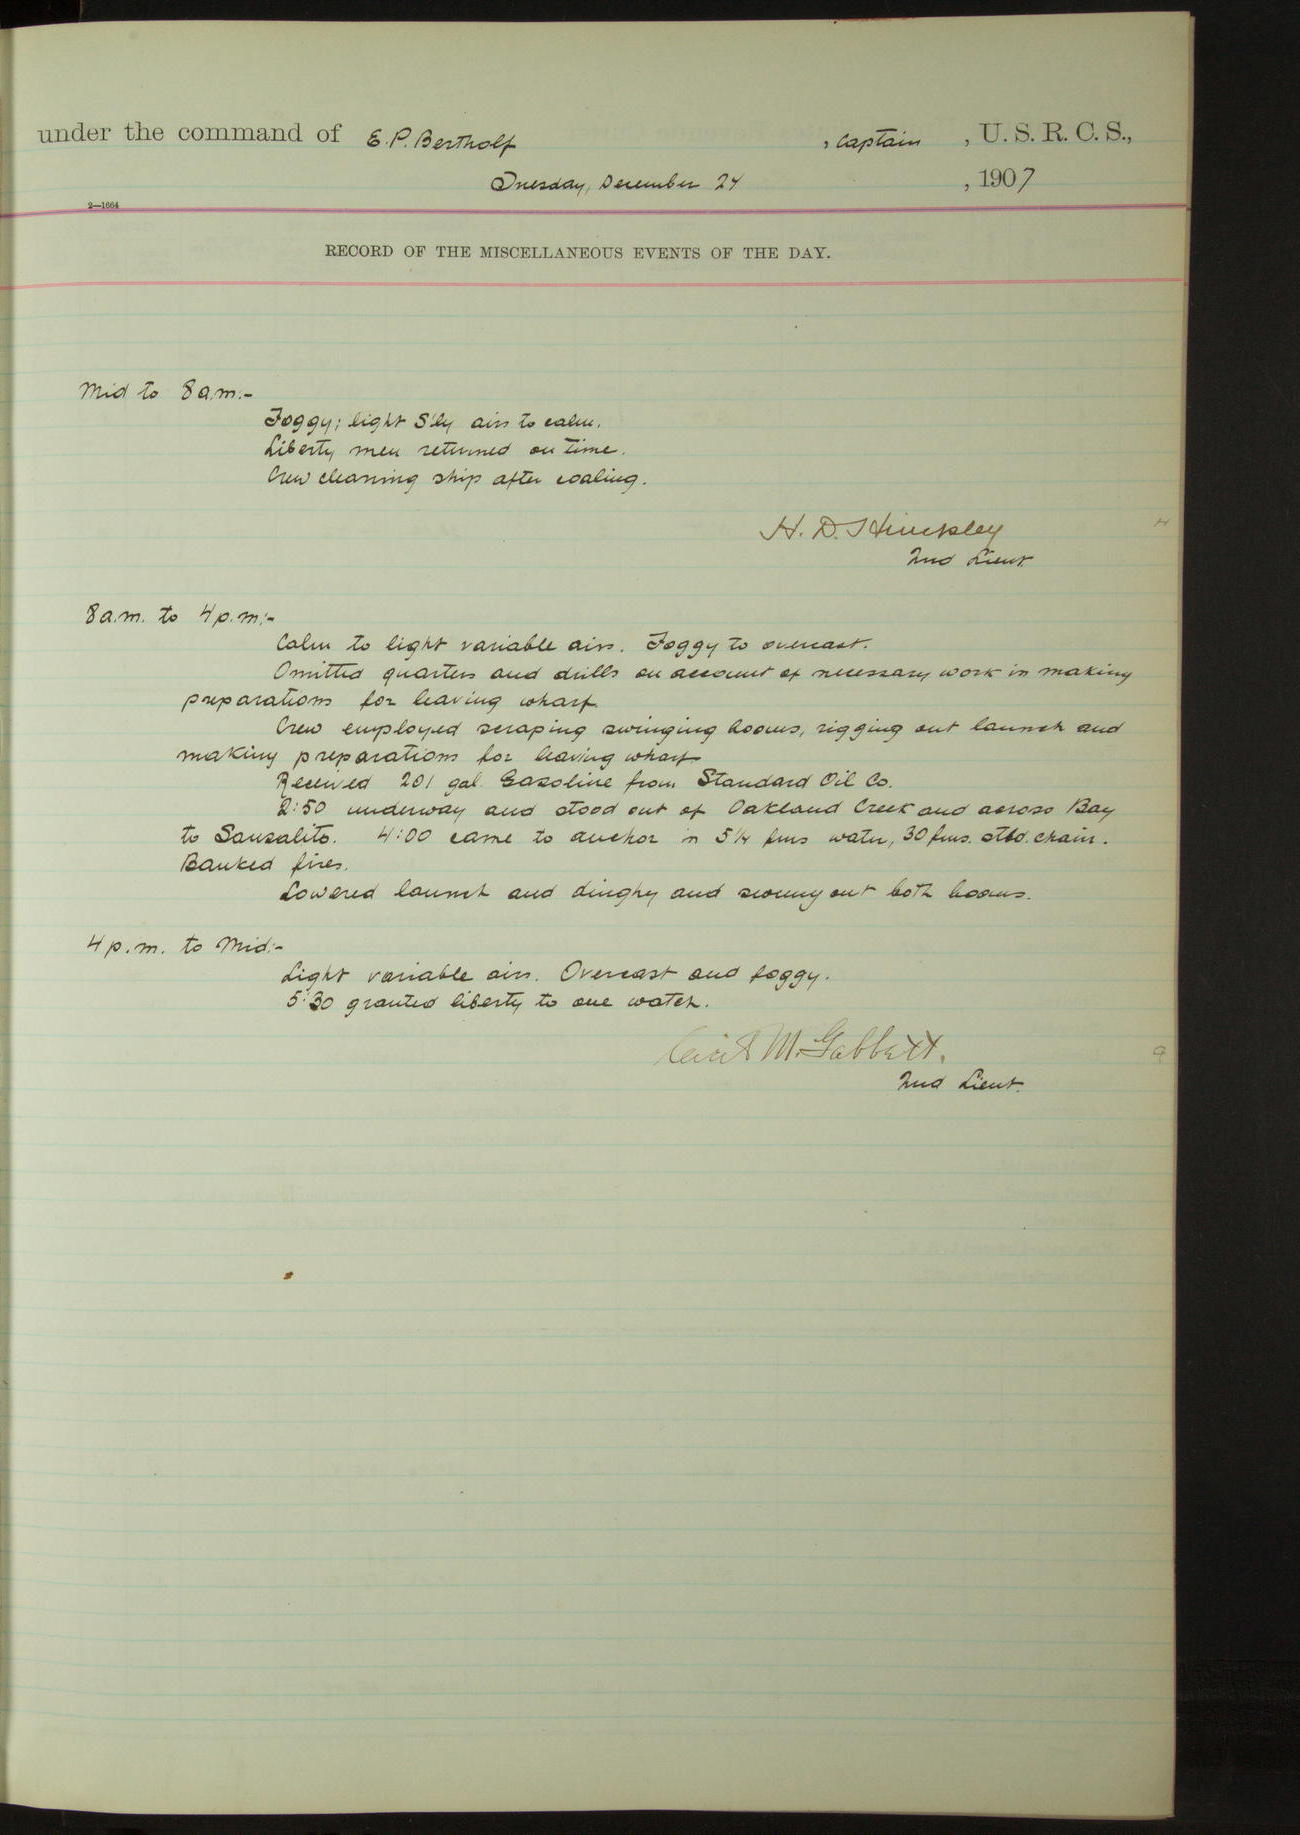 under the command of E. P. Bertholf, Captain, U. S. R. C. S.,
Tuesday, December 24, 1907
2—1664
RECORD OF THE MISCELLANEOUS EVENTS OF THE DAY.
Mid to 8 a.m:-
Foggy; light S'ly airs to calm.
Liberty men returned on time.
Crew cleaning ship after coaling.
H. D. Hinckley
2nd Lieut
8 a.m. to 4 p.m:-
Calm to light variable airs. Foggy to overcast.
Omitted quarters and drills on account of necessary work in making
preparations for leaving wharf.
Crew employed scraping swinging booms, rigging out launch and
making preparations for leaving wharf.
Received 201 gal. Gasoline from Standard Oil Co.
2:50 underway and stood out of Oakland Creek and across Bay
to Sausalito. 4:00 came to anchor in 5¼ fms water, 30 fms. stbd. chain.
Banked fires.
Lowered launch and dinghy and swung out both booms.
4 p.m. to Mid:-
Light variable airs. Overcast and foggy.
5:30 granted liberty to one watch.
Cecil M. Gabbett.
2nd Lieut.